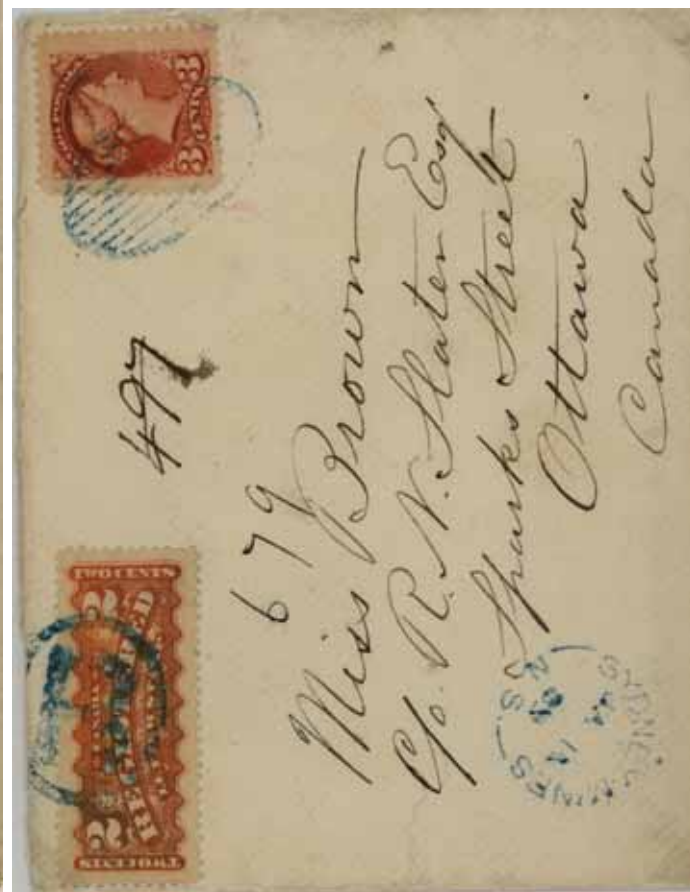 497
679
Miss Brown
C/o. R. N. Slater Esq
Sparks Street
Ottawa.
Canada
TWO CENTS
2 REGISTERED 2
TWO CENTS
3 CENTS 3
SYDNEY MINES
JA 14
N. S.